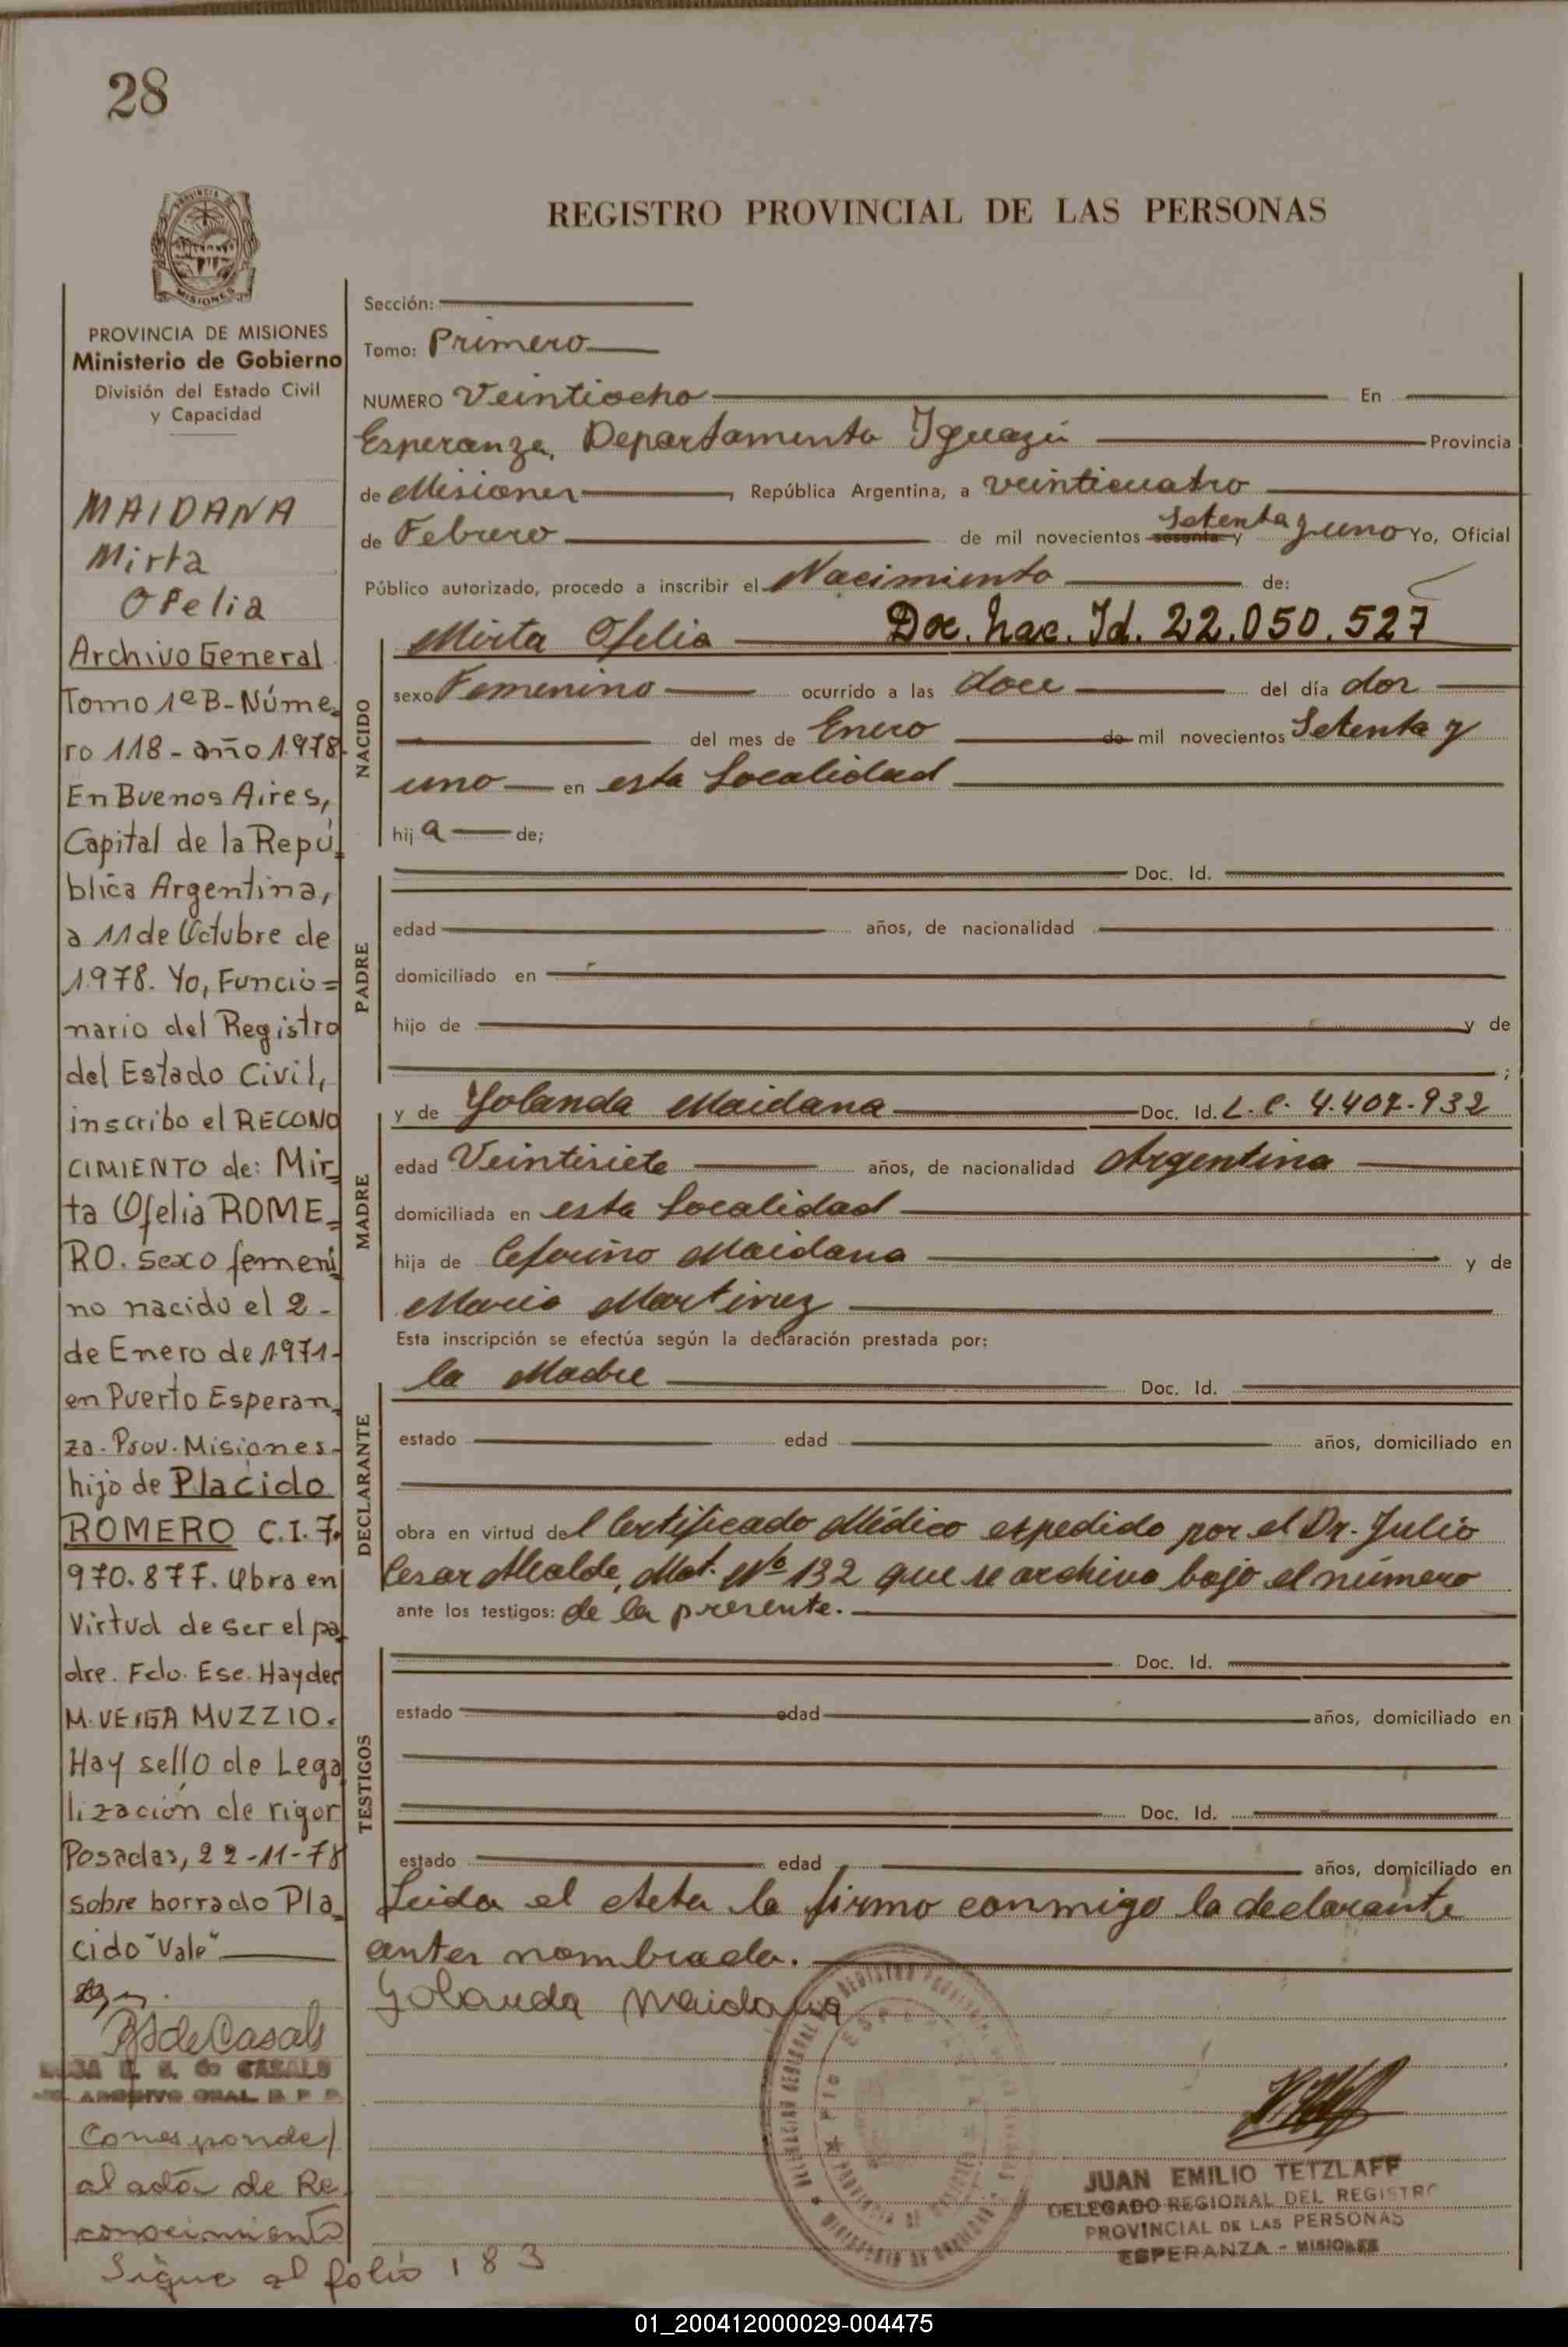 28
PROVINCIA
MISIONES
REGISTRO PROVINCIAL DE LAS PERSONAS
PROVINCIA DE MISIONES
Ministerio de Gobierno
División del Estado Civil
y Capacidad
MAIDANA
Mirta
Ofelia
Archivo General
Tomo 1º B - Núme=
ro 118 - año 1978-
En Buenos Aires,
Capital de la Repú=
blica Argentina,
a 11 de Octubre de
1978. Yo, Funcio=
nario del Registro
del Estado Civil,
inscribo el RECONO
CIMIENTO de: Mir=
ta Ofelia ROME=
RO. sexo femeni
no nacido el 2-
de Enero de 1971-
en Puerto Esperan=
za - Prov. Misiones-
hijo de Placido
ROMERO C.I. 7.
970.877. Obra en
Virtud de ser el pa=
dre. Fdo. Ese. Haydee
M. VEIGA MUZZIO.
Hay sello de Lega
lización de rigor
Posadas, 22-11-78
sobre borrado Pla=
cido "Vale"
de Casals
de CASALS
ARCHIVO GRAL R P P
Corresponde
al acta de Re
conocimiento
Sigue al folio 183
Sección:
Tomo: Primero
NUMERO Veintiocho En
Esperanza, Departamento Iguazú Provincia
de Misiones, República Argentina, a veinticuatro
de Febrero de mil novecientos sesenta y Setenta y uno Yo, Oficial
Público autorizado, procedo a inscribir el Nacimiento de:
Mirta Ofelia Doc. Nac. Id. 22.050.527
NACIDO
sexo Femenino ocurrido a las doce del día dos
del mes de Enero de mil novecientos Setenta y
uno en esta Localidad
hij a de;
PADRE
Doc. Id.
edad años, de nacionalidad
domiciliado en
hijo de y de
;
MADRE
y de Yolanda Maidana Doc. Id. L.C. 4.407.932
edad Veintisiete años, de nacionalidad Argentina
domiciliada en esta Localidad
hija de Ceferino Maidana y de
Maria Martinez
Esta inscripción se efectúa según la declaración prestada por:
DECLARANTE
la Madre Doc. Id.
estado edad años, domiciliado en
obra en virtud del Certificado Médico espedido por el Dr. Julio
Cesar Alcalde, Mat. Nº 132 que se archiva bajo el número
ante los testigos: de la presente.
TESTIGOS
Doc. Id.
estado edad años, domiciliado en
Doc. Id.
estado edad años, domiciliado en
Leida el Acta la firmo conmigo la declarante
antes nombrada.
Yolanda Maidana
JUAN EMILIO TETZLAFF
DELEGADO REGIONAL DEL REGISTRO
PROVINCIAL DE LAS PERSONAS
ESPERANZA - MISIONES
01_200412000029-004475